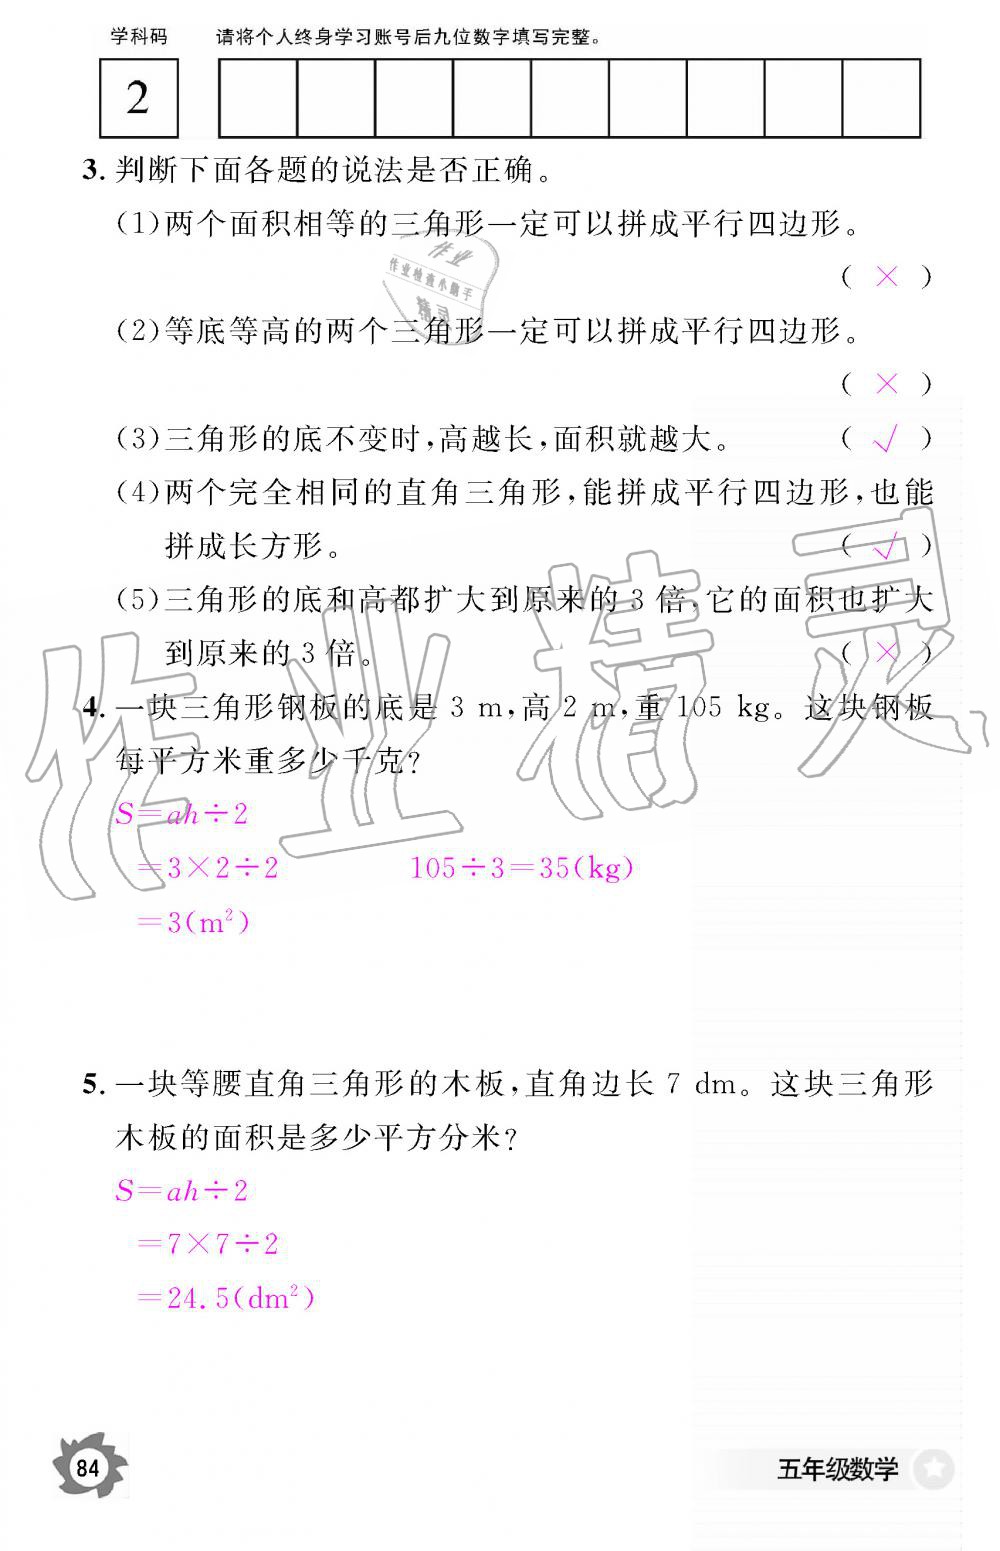 学科码 请将个人终身学习账号后九位数字填写完整。
2
3. 判断下面各题的说法是否正确。
(1)两个面积相等的三角形一定可以拼成平行四边形。
( × )
(2)等底等高的两个三角形一定可以拼成平行四边形。
( × )
(3)三角形的底不变时,高越长,面积就越大。 ( √ )
(4)两个完全相同的直角三角形,能拼成平行四边形,也能
拼成长方形。 ( √ )
(5)三角形的底和高都扩大到原来的 3 倍,它的面积也扩大
到原来的 3 倍。 ( × )
4. 一块三角形钢板的底是 3 m,高 2 m,重 105 kg。这块钢板
每平方米重多少千克?
S=ah÷2
=3×2÷2 105÷3=35(kg)
=3(m²)
5. 一块等腰直角三角形的木板,直角边长 7 dm。这块三角形
木板的面积是多少平方分米?
S=ah÷2
=7×7÷2
=24.5(dm²)
84 五年级数学
作业精灵
作业
作业检查小助手
精灵